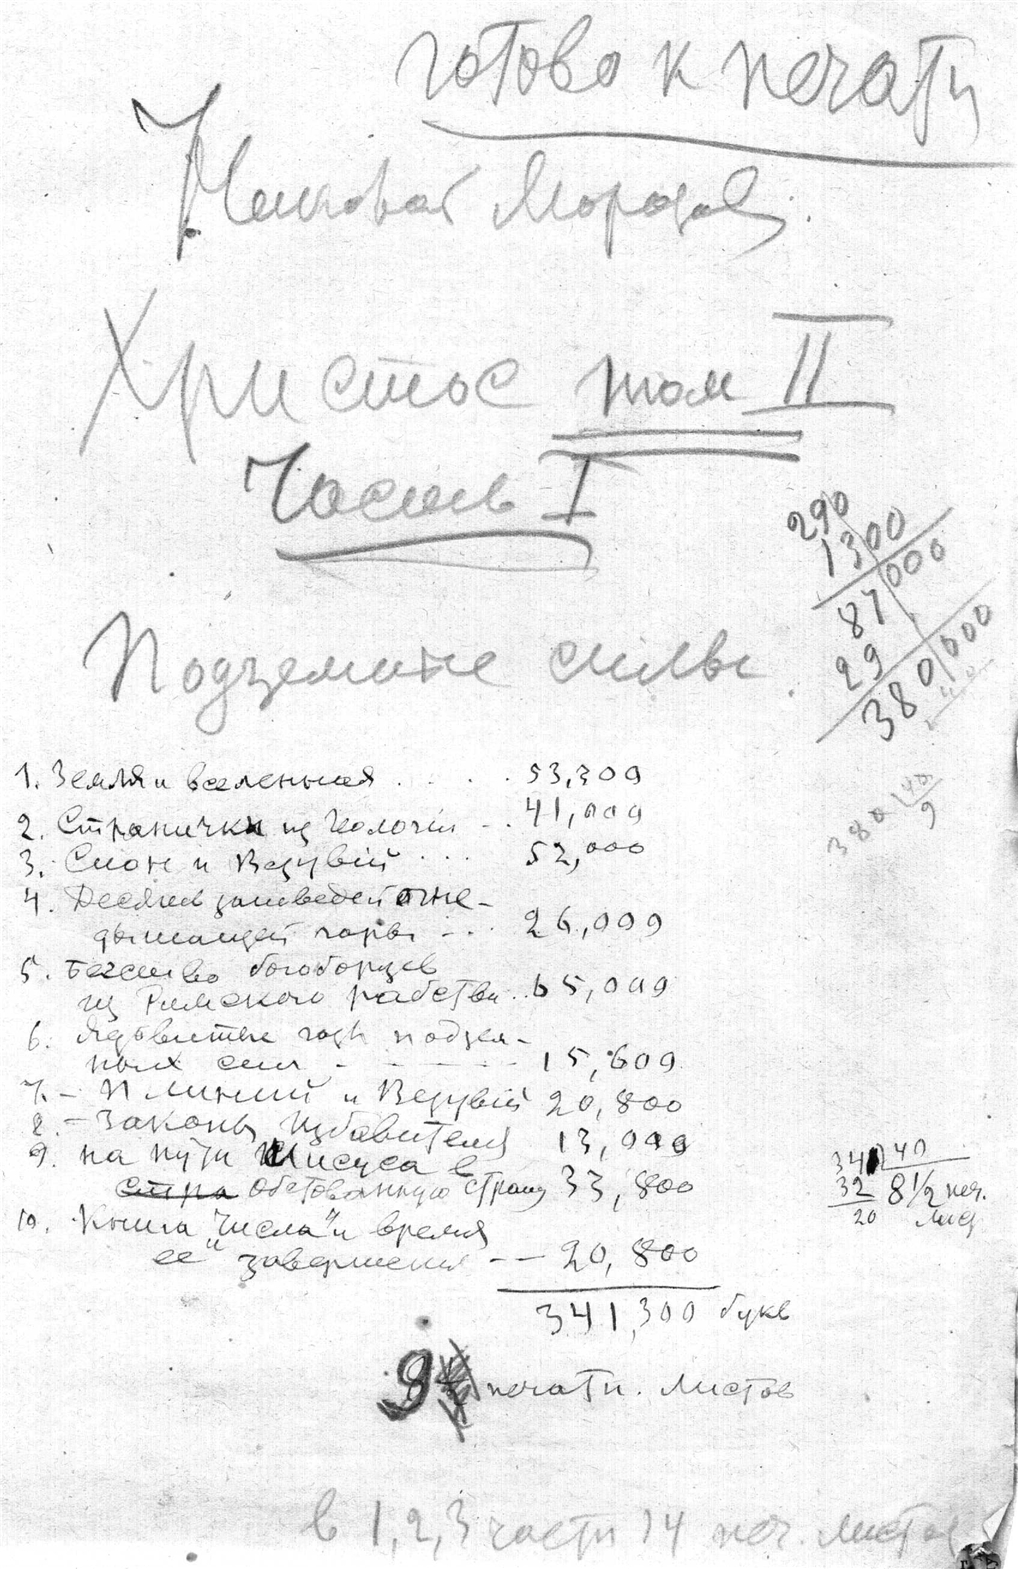 готово к печати
Николай Морозов.
Христос том II
Часть I
290
1300
87000
29
380000
Подземные силы.
1. Земля и вселенная . . . . 53,300
2. Странички из Геологии - . . 41,000
3. Сион и Везувий . . . 52,000
4. Десять заповедей огне-
дышащей горы - . . 26,000
5. Бегство богоборцев
из Римского рабства . . 65,000
6. Ядовитые газы подзем-
ных сил - - - - - 15,600
7. - Плиний и Везувий 20,800
8. - Законы Избавителя 13,000
9. На пути Иисуса в
стра обетованную страну 33,800
10. Книга "Числа" и время
ее завершения - - 20,800
341,300 букв
9 печатн. листов
380 40
9
340 40
32 8 1/2 печ.
20 лист
в 1, 2, 3 части 14 печ. листов